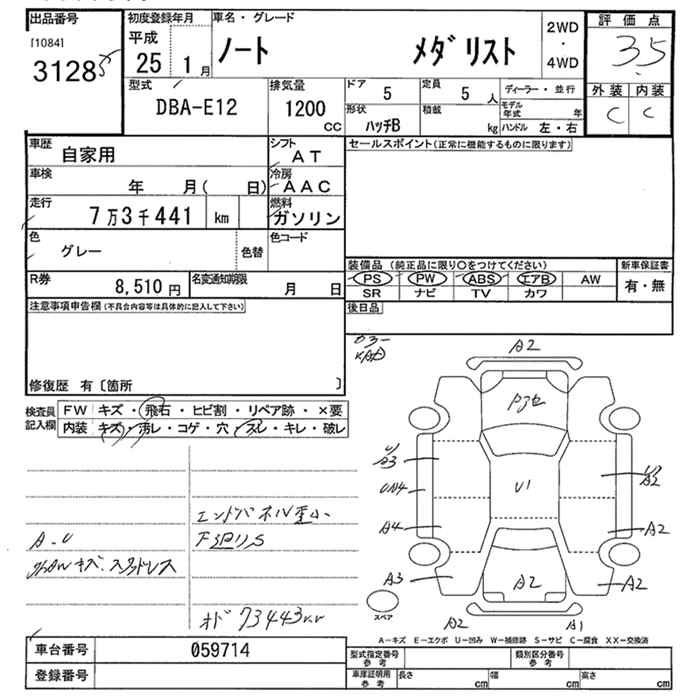 出品番号
[1084]
3128
初度登録年月
平成
25 1月
車名・グレード
ノート メダリスト
2WD
・
4WD
評価点
3.5
外装 内装
C C
型式
DBA-E12
排気量
1200
CC
ドア 5
定員 5 人
ディーラー・並行
形状
ハッチB
積載
kg
モデル年式 年
ハンドル 左・右
車歴
自家用
シフト
AT
セールスポイント(正常に機能するものに限ります)
車検
年 月( 日)
冷房
AAC
走行
7万3千441 km
燃料
ガソリン
色
グレー
色替
色コード
R券
8,510円
名変通知期限
月 日
装備品 (純正品に限り○をつけてください)
PS PW ABS エアB AW
SR ナビ TV カワ
新車保証書
有・無
注意事項申告欄(不具合内容等は具体的に記入して下さい)
後日品
修復歴 有〔箇所 〕
検査員
記入欄
FW キズ・飛石・ヒビ割・リペア跡・×要
内装 キズ・汚レ・コゲ・穴・スレ・キレ・破レ
A2
U1
A3
A2
UA4
A4
A2
A3
A2
A2
A2
A1
スペア
A・U
下廻りS
オド 73443
A-キズ E-エクボ U-凹み W-補修跡 S-サビ C-腐食 XX-交換済
車台番号 059714
登録番号
型式指定番号
参考
類別区分番号
参考
車庫証明用
参考
長さ cm
幅 cm
高さ cm